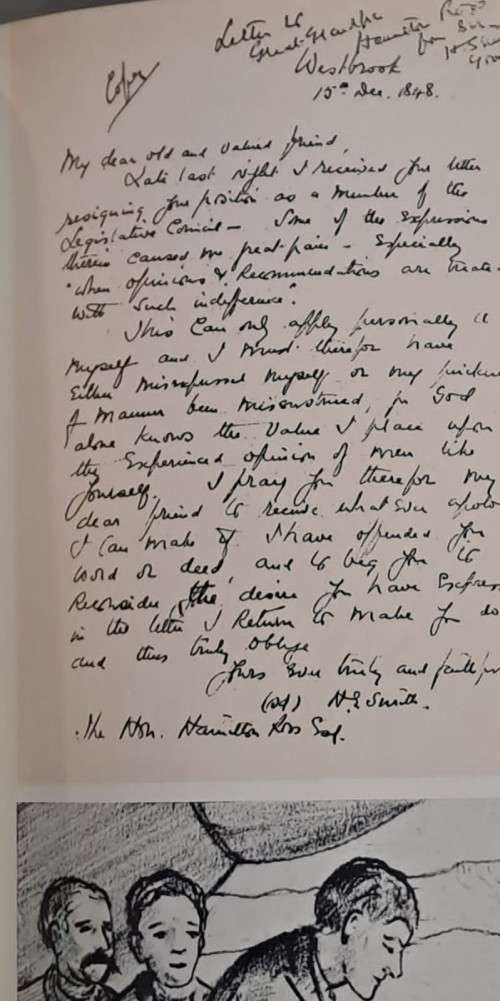 Letter to
Great-Grandpa
Hamilton Ross
from Sir
Copy
Westbrook
15th Dec. 1848.
My dear old and valued friend,
Late last night I received your letter
resigning your position as a Member of the
Legislative Council — Some of the expressions
therein caused me great pain — Especially
"when opinions & Recommendations are
with such indifference".
This can only apply personally
myself and I must therefor have
Either misexpressed myself or my
of manner been misconstrued, for God
alone knows the value I place upon
the Experienced opinion of men like
yourself. I pray you therefor my
dear friend to receive whatever
I can make if I have offended you
word or deed, and to beg you to
Reconsider the desire you have
in the letter I Return to make you do
and thus truly oblige
yours ever truly and
(sd) H.G. Smith.
The Hon. Hamilton Ross Esq.